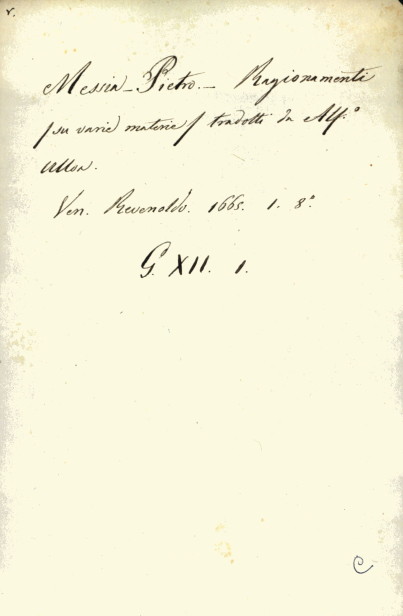 r.
Messia - Pietro. - Ragionamenti
/ su varie materie / tradotti da Alf.º
Ulloa.
Ven. Revenoldo. 1665. 1. 8.º
G. XII. 1.
C